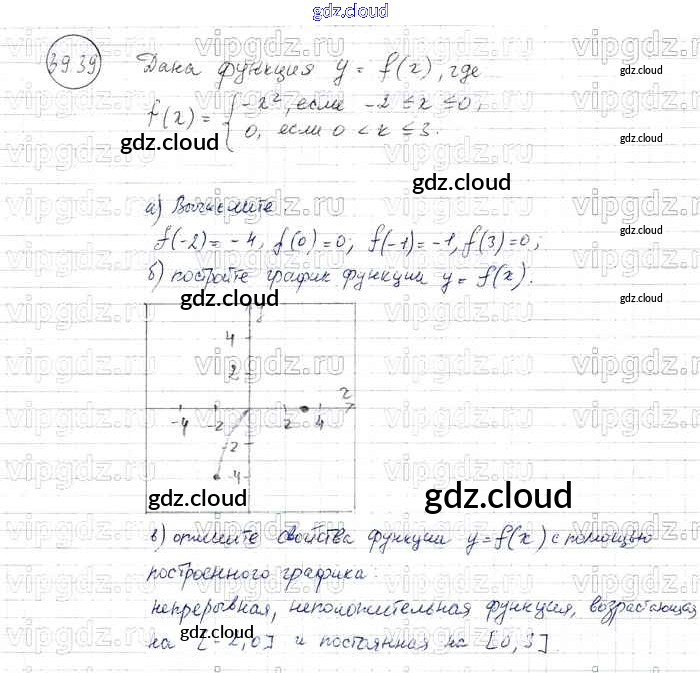 gdz.cloud
39.39 Дана функция y = f(x), где
f(x) = { -x², если -2 ≤ x ≤ 0;
0, если 0 < x ≤ 3.
gdz.cloud
gdz.cloud
gdz.cloud
gdz.cloud
gdz.cloud
а) Вычислите
f(-2) = -4, f(0) = 0, f(-1) = -1, f(3) = 0;
gdz.cloud
б) постройте график функции y = f(x).
gdz.cloud
gdz.cloud
y
4
2
x
-4 -2 2 4
-2
-4
gdz.cloud
gdz.cloud
gdz.cloud
в) опишите свойства функции y = f(x) с помощью
построенного графика.
gdz.cloud
непрерывная, неположительная функция, возрастающая
gdz.cloud
на [-2, 0] и постоянная на [0, 3].
gdz.cloud
vipgdz.ru